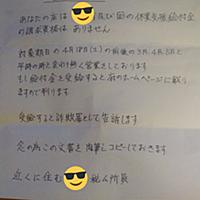 あなたの店は 及び国の休業支援給付金
の請求資格は ありません
対象期日の4月18日(土)の前後の3月、4月、5月と
平時の時と変わり無く営業をしております
もし給付金を受給すると府のホームページに載り
ますので判ります
受給すると詐欺罪として告訴します
念の為この文書を肉筆でコピーしておきます
近くに住む 税人所員